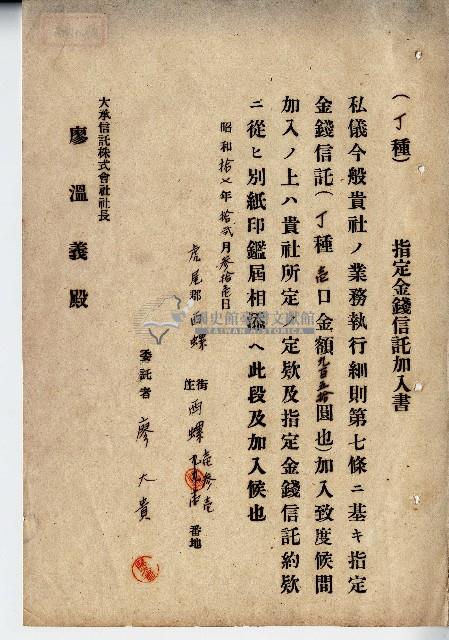 (丁種) 指定金錢信託加入書
私儀今般貴社ノ業務執行細則第七條ニ基キ指定
金錢信託(丁種壱口金額九百五拾圓也)加入致度候間
加入ノ上ハ貴社所定ノ定欵及指定金錢信託約欵
ニ從ヒ別紙印鑑屆相添ヘ此段及加入候也
昭和拾七年拾弐月參拾壱日
虎尾郡西螺 街庄 西螺 番地
委託者 廖大貴
大承信託株式會社社長
廖溫義殿
國史館臺灣文獻館
TAIWAN HISTORICA